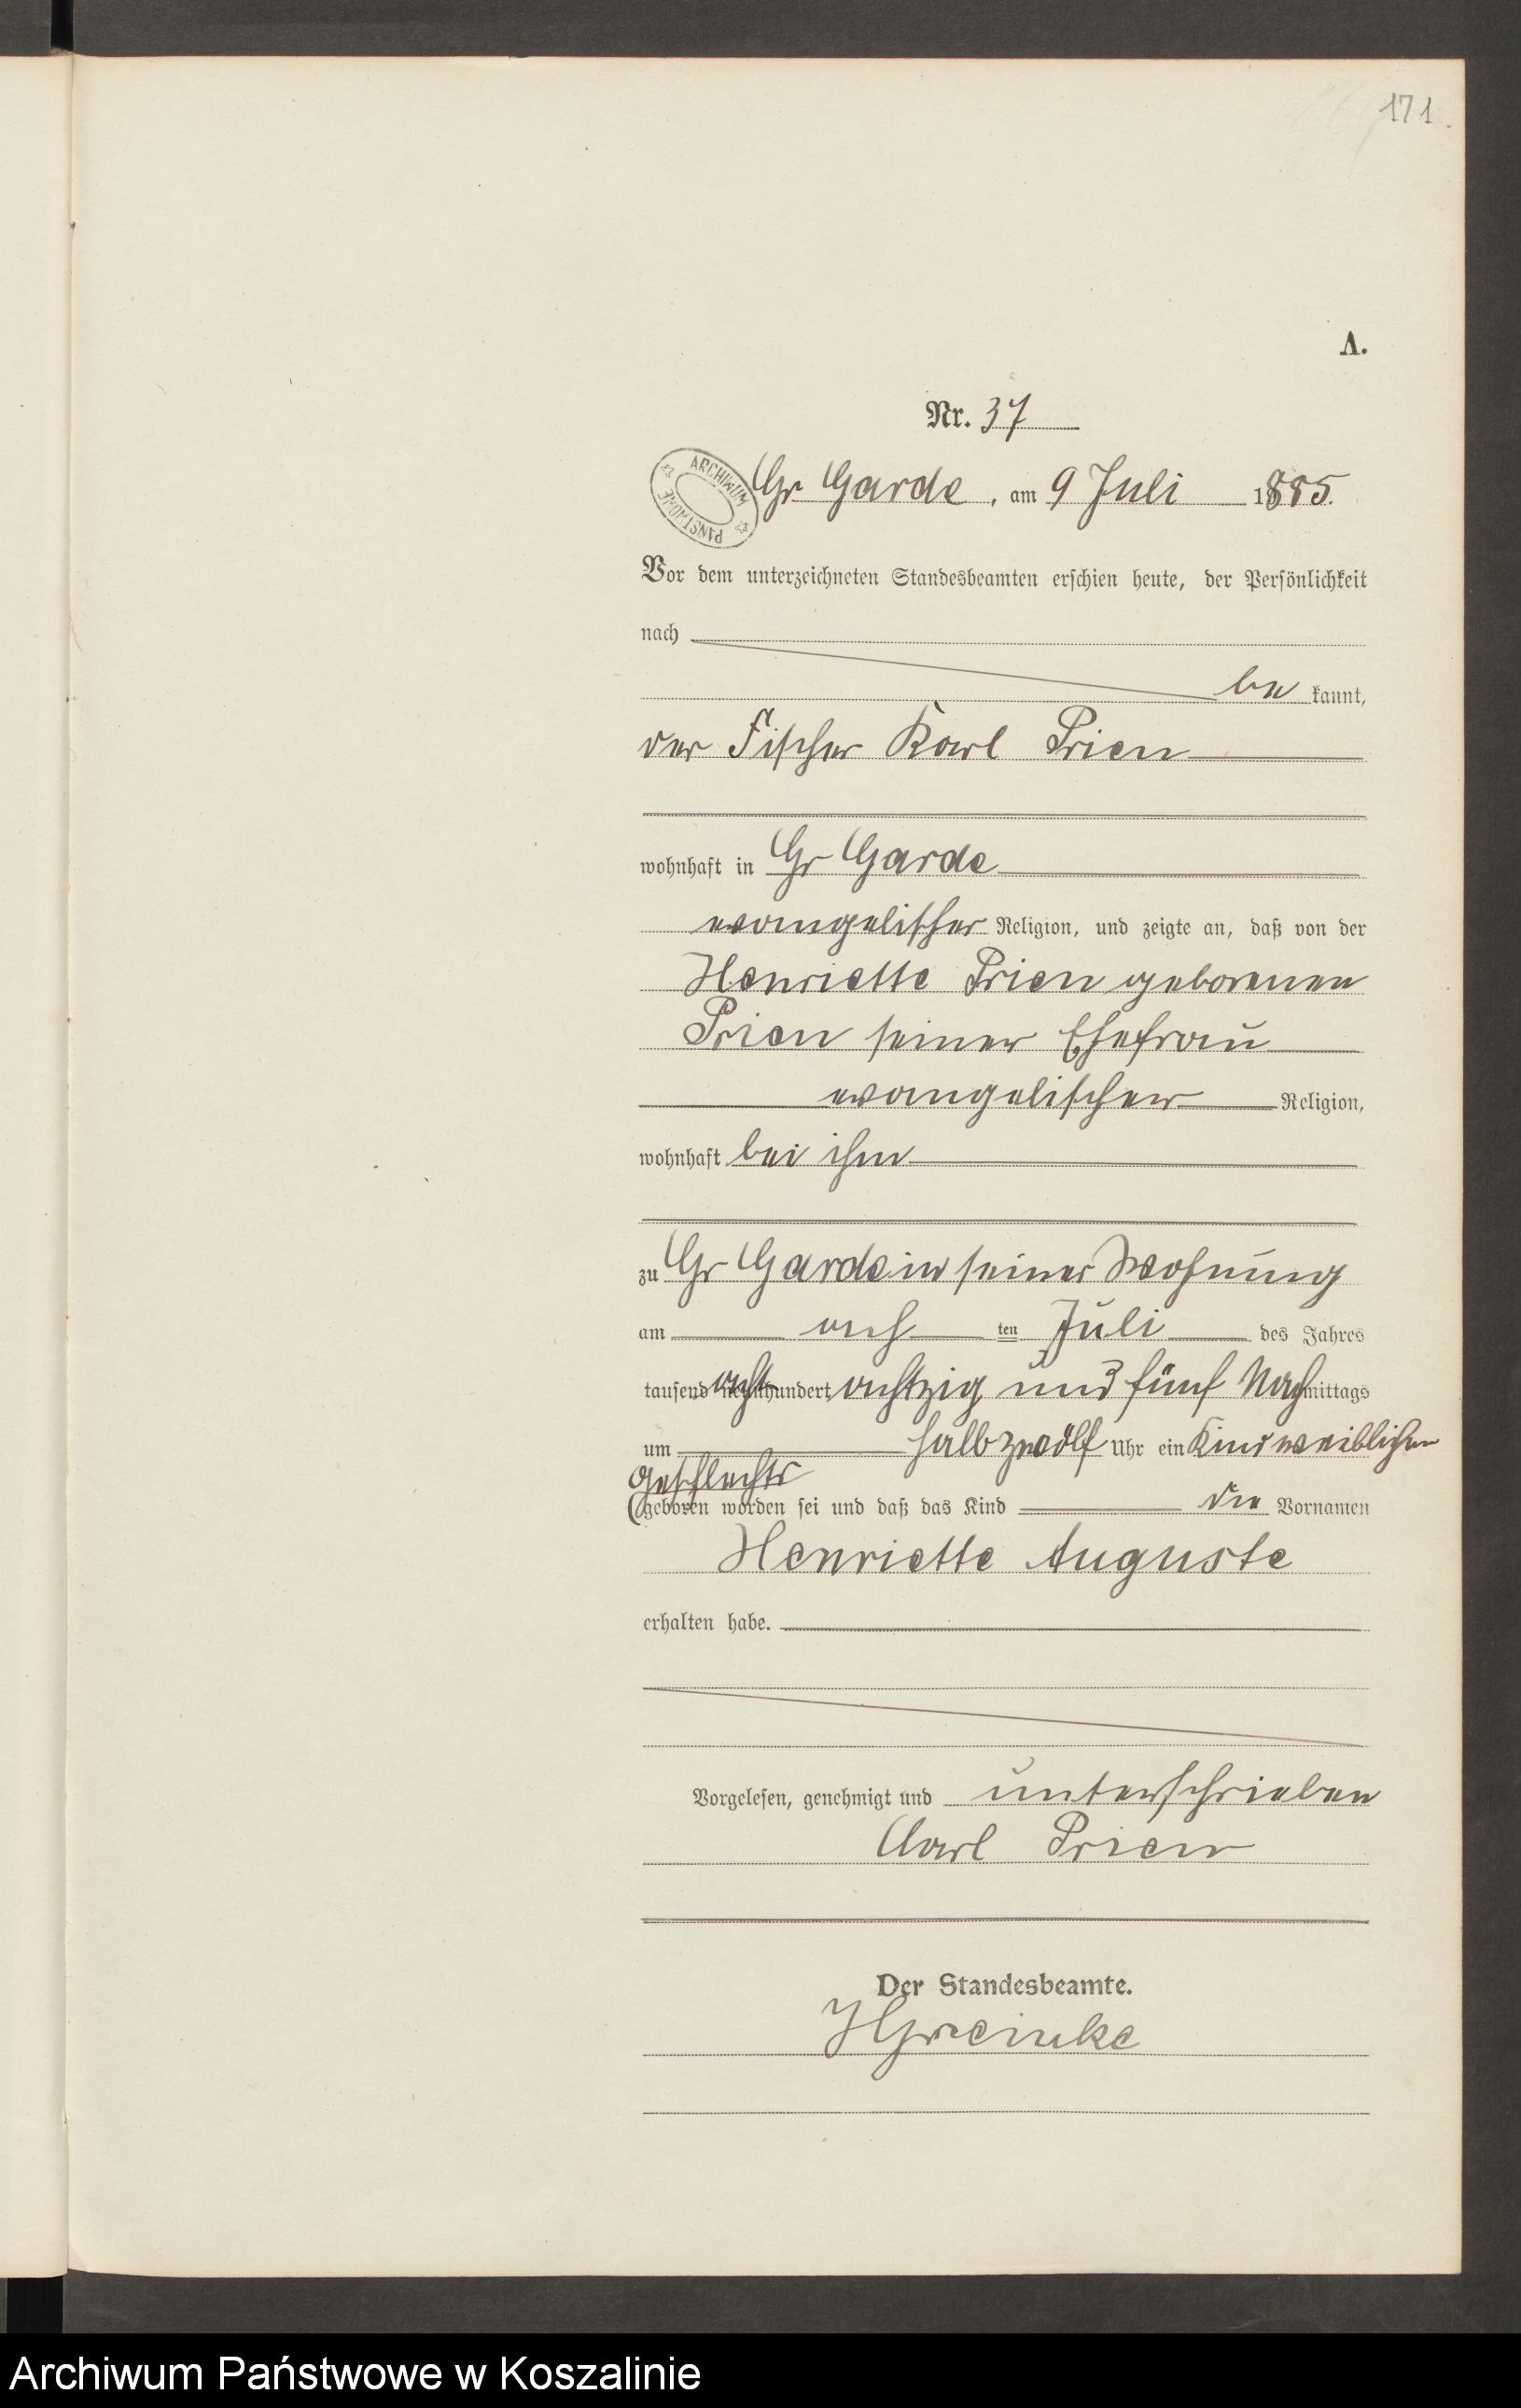 171.
A.
Nr. 37
ARCHIWUM PAŃSTWOWE
Gr Garde, am 9 Juli 1885.
Vor dem unterzeichneten Standesbeamten erschien heute, der Persönlichkeit
nach
be kannt,
der Fischer Karl Prien
wohnhaft in Gr Garde
evangelischer Religion, und zeigte an, daß von der
Henriette Prien geborenen
Prien seiner Ehefrau
evangelischer Religion,
wohnhaft bei ihm
zu Gr Garde in seiner Wohnung
am ach ten Juli des Jahres
tausend acht hundert achtzig und fünf Nachmittags
um halb zwölf Uhr ein Kind weiblichen
Geschlechts
geboren worden sei und daß das Kind die Vornamen
Henriette Auguste
erhalten habe.
Vorgelesen, genehmigt und unterschrieben
Carl Prien
Der Standesbeamte.
Archiwum Państwowe w Koszalinie